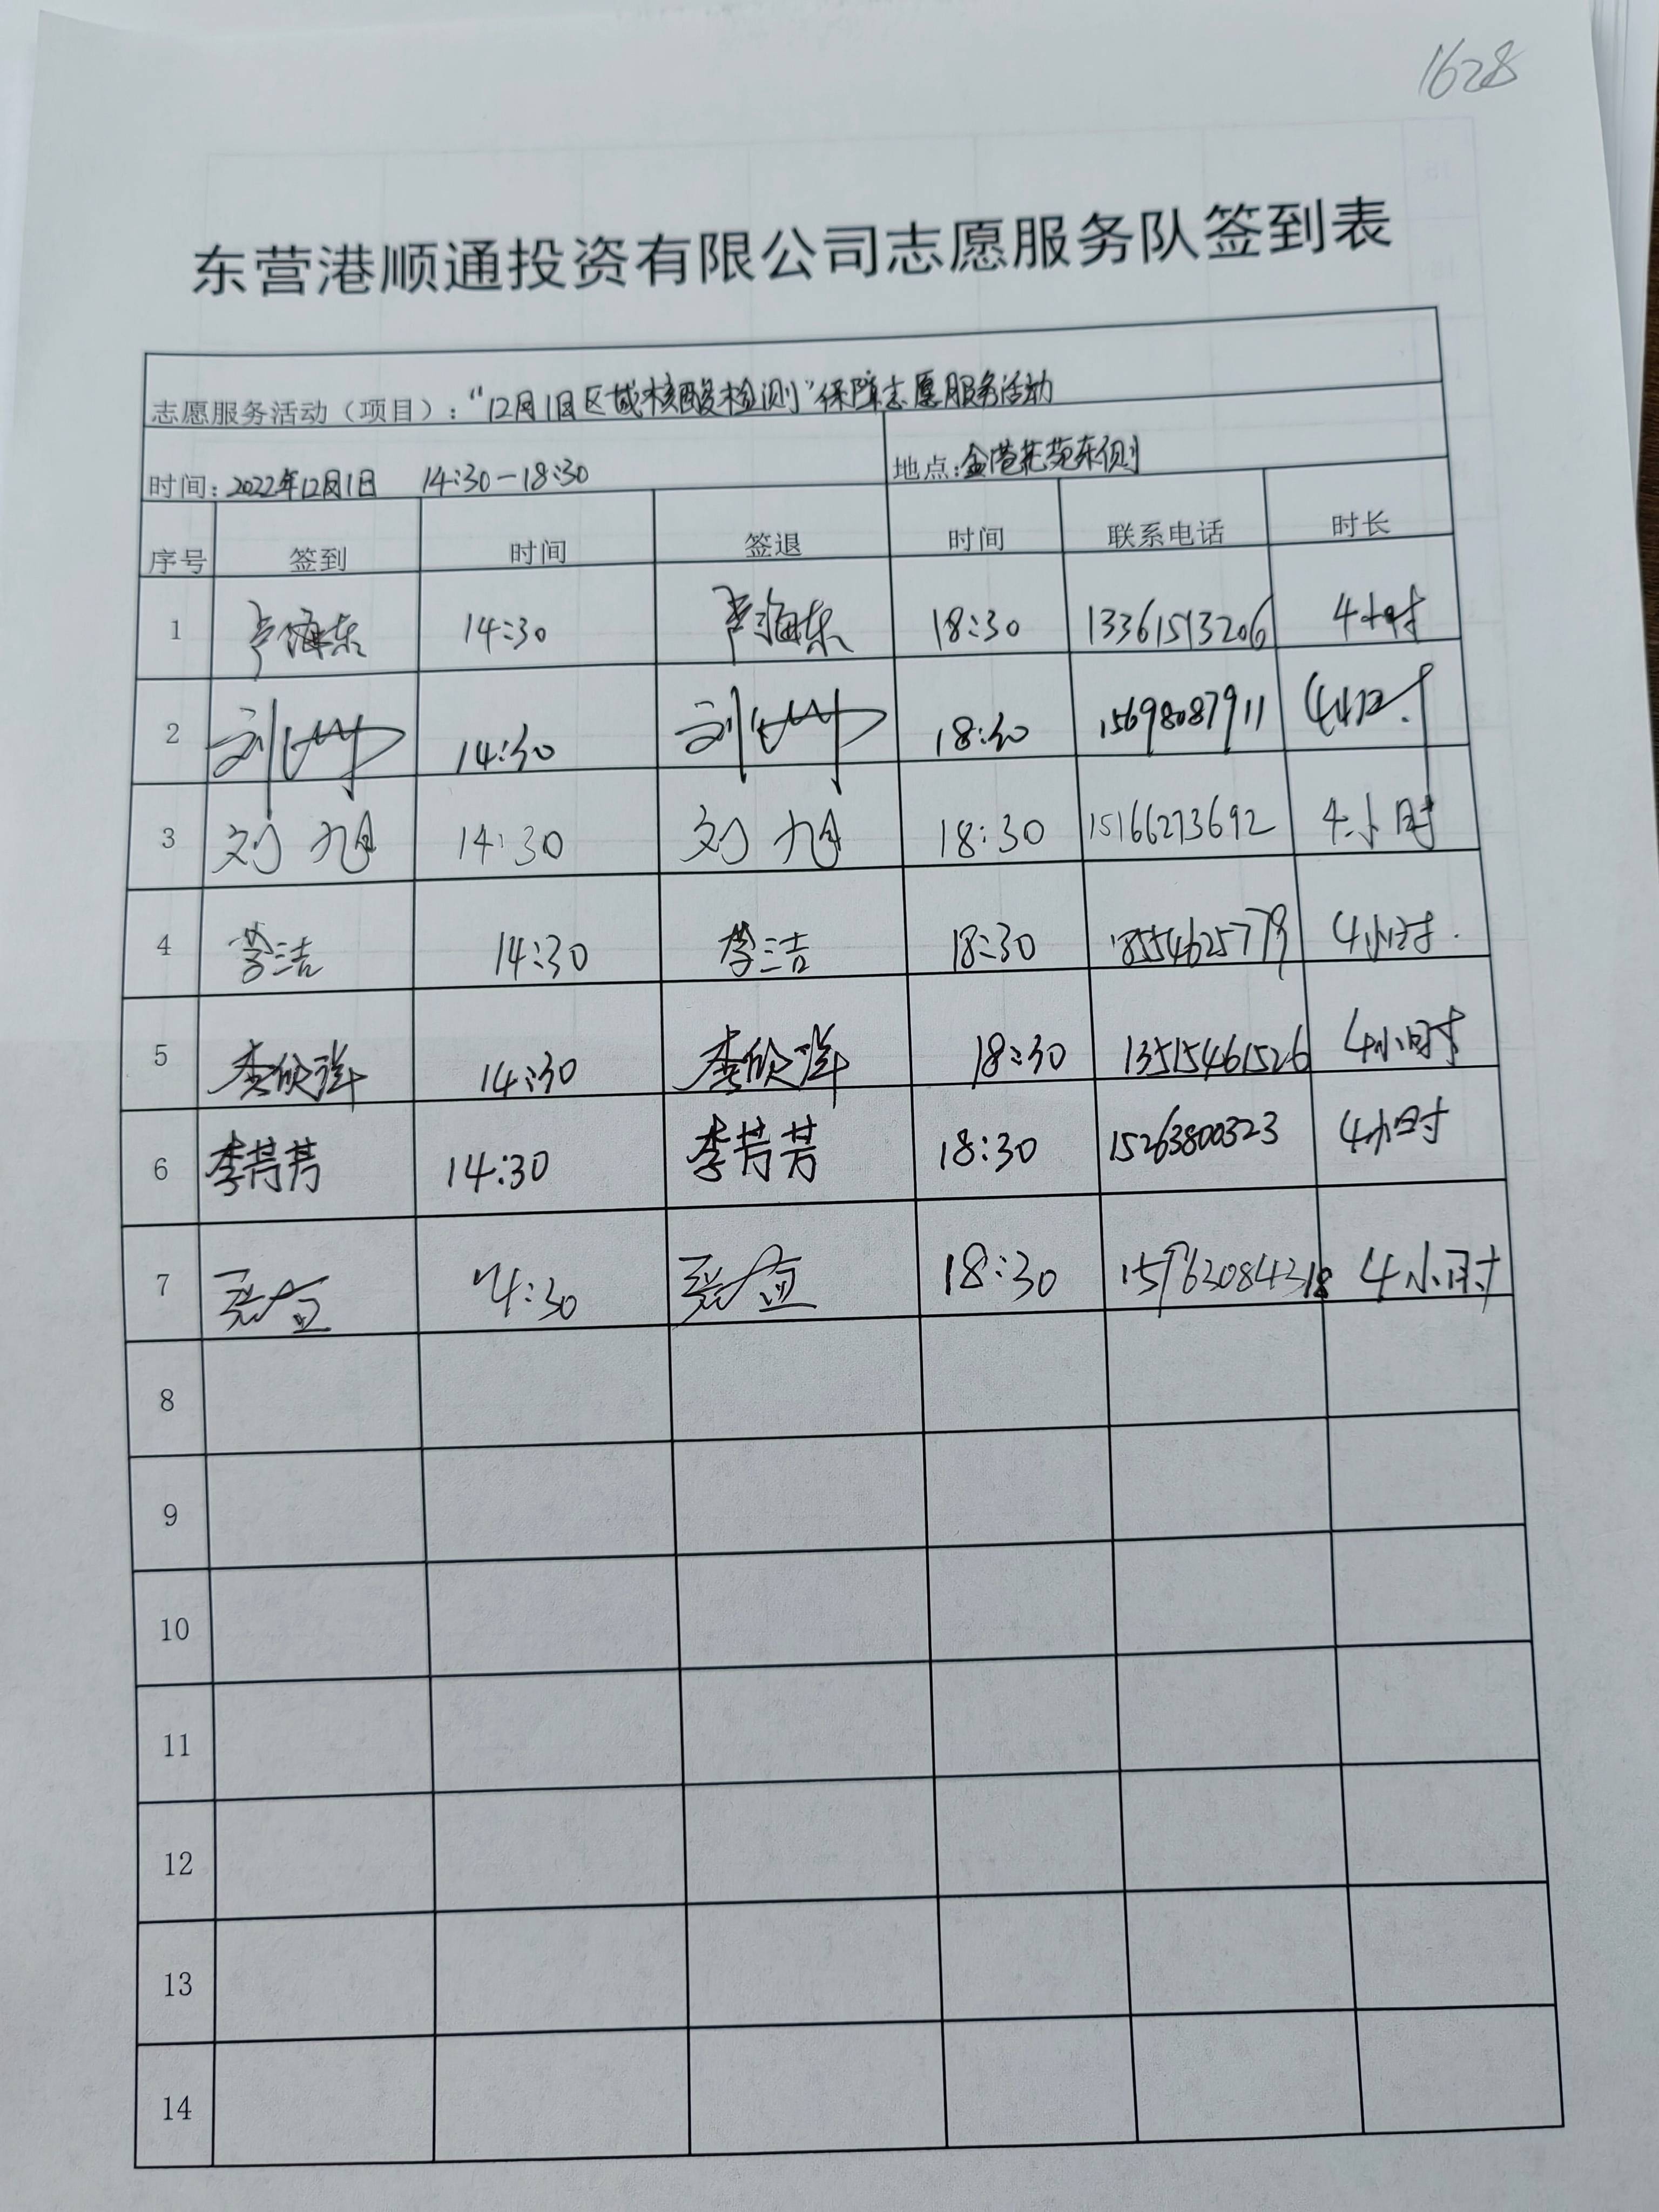 1628
东营港顺通投资有限公司志愿服务队签到表
志愿服务活动（项目）：“12月1日区域核酸检测”保障志愿服务活动
时间：2022年12月1日 14:30-18:30 地点：金港花苑东侧
序号 签到 时间 签退 时间 联系电话 时长
1 卢海东 14:30 卢海东 18:30 13361513206 4小时
2 刘 14:30 刘 18:30 15698087911 4小时
3 刘旭 14:30 刘旭 18:30 15166273692 4小时
4 李洁 14:30 李洁 18:30 18554625779 4小时.
5 李欣洋 14:30 李欣洋 18:30 13515461526 4小时
6 李芳芳 14:30 李芳芳 18:30 15263800323 4小时
7 14:30 18:30 4小时
8
9
10
11
12
13
14